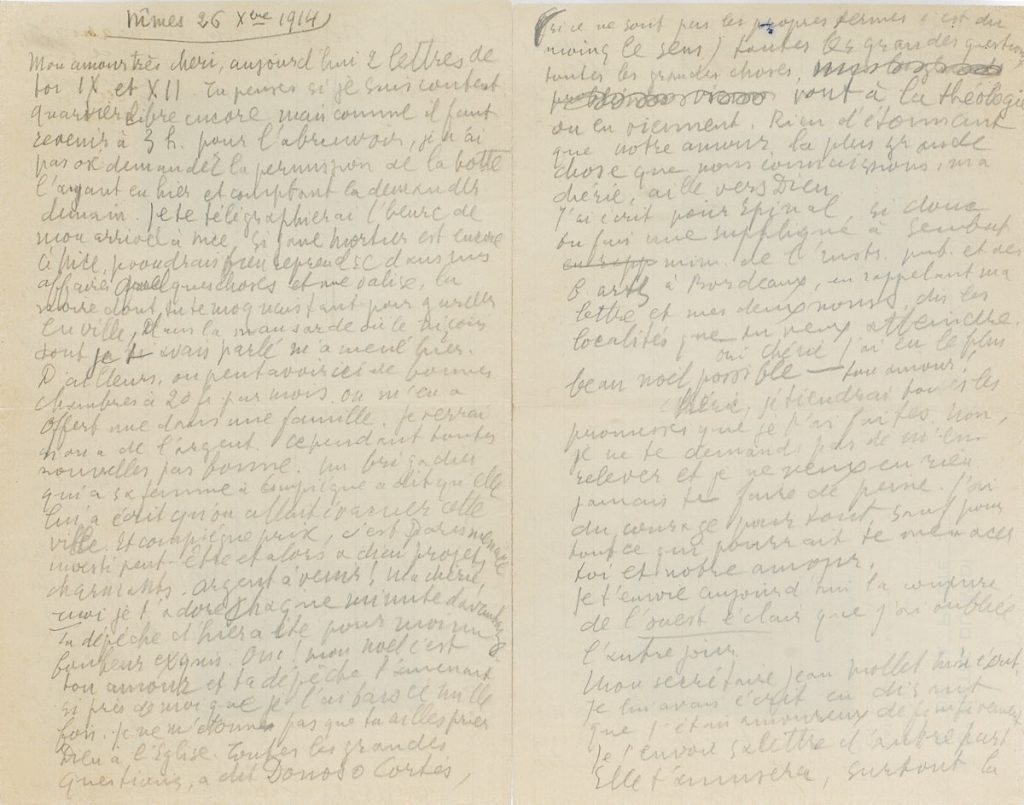 Nîmes 26 Xbre 1914
Mon amour très chéri, aujourd'hui 2 lettres de
toi IX et XII. Tu penses si je suis content
quartier libre encore mais comme il faut
revenir à 3 h. pour l'abreuvoir, je n'ai
pas osé demander la permission de la botte
l'ayant eu hier et comptant la demander
demain. Je te télégraphierai l'heure de
mon arrivée à Nice. Si Mortier est encore
à Nice, voudrais bien reprendre dans mes
affaires quelques choses et une valise, la
noire dont tu te moquais tant pour
en ville, dans la mansarde où le niçois
dont je t'avais parlé m'a mené hier.
D'ailleurs, on peut avoir ici de bonnes
chambres à 20 f par mois. On m'en a
offert une dans une famille. Je verrai
si on a de l'argent. Cependant toutes
nouvelles pas bonnes. Un brigadier
qui a sa femme à Compiègne a dit qu'elle
lui a écrit qu'on allait évacuer cette
ville. Et Compiègne pris, c'est Paris menacé
investi peut-être et alors adieu projets
charmants. Argent à venir! Ma chérie,
moi je t'adore chaque minute davantage.
Ta dépêche d'hier a été pour moi un
bonheur exquis. Oui! mon noël c'est
ton amour et ta dépêche t'amenant
si près de moi que je t'ai baisée mille
fois. Je ne m'étonne pas que tu ailles prier
Dieu à l'Eglise. Toutes les grandes
questions, a dit Donoso Cortès,
(si ce ne sont pas les propres termes c'est du
moins le sens) toutes les grandes questions
toutes les grandes choses,
vont à la théologie
ou en viennent. Rien d'étonnant
que notre amour, la plus grande
chose que nous connaissions, ma
chérie, aille vers Dieu.
J'ai écrit pour Epinal, si donc
tu fais une supplique à Sembat
min. de l'Instr. pub. et des
B. arts à Bordeaux, en rappelant ma
lettre et mes deux noms, dis les
localités que tu veux atteindre.
oui chérie j'ai eu le plus
beau noël possible — ton amour!
Chérie, je tiendrai toutes les
promesses que je t'ai faites. Non,
je ne te demande pas de m'en
relever et je ne veux en rien
jamais te faire de peine. J'ai
du courage pour tout, sauf pour
tout ce qui pourrait te menacer
toi et notre amour.
Je t'envoie aujourd'hui la coupure
de l'ouest éclair que j'ai oubliée
l'autre jour.
Mon secrétaire Jean Mollet m'a écrit,
Je lui avais écrit en disant
que j'étais amoureux
Je t'envoie sa lettre d'autre part
Elle t'amusera, surtout la